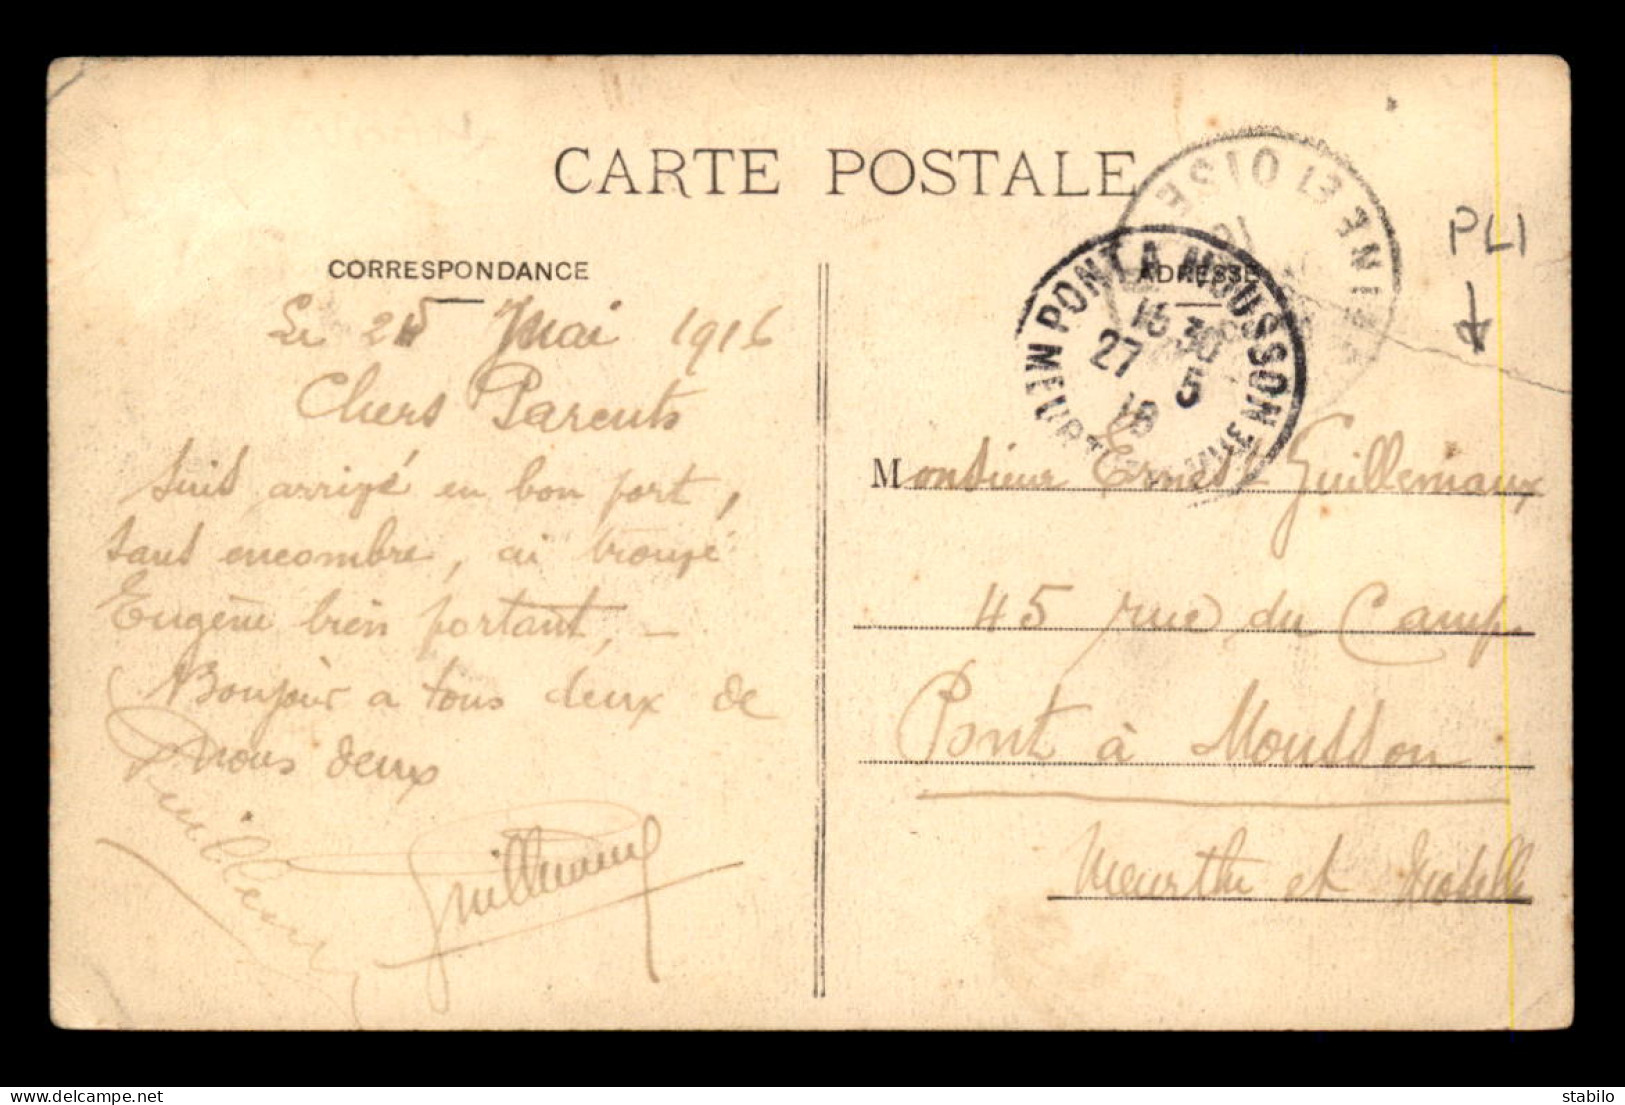 CARTE POSTALE
CORRESPONDANCE
Le 25 Mai 1916
Chers Parents
suis arrivé en bon port,
sans encombre, ai trouvé
Eugène bien portant, —
Bonjour a tous deux de
nous deux
Guillemaux
ADRESSE
Monsieur Ernest Guillemaux
45 rue du Camp
Pont à Mousson
Meurthe et Moselle
PONT A MOUSSON
16 30
27 5
16
NE ET OISE
PLI
delcampe.net
stabilo